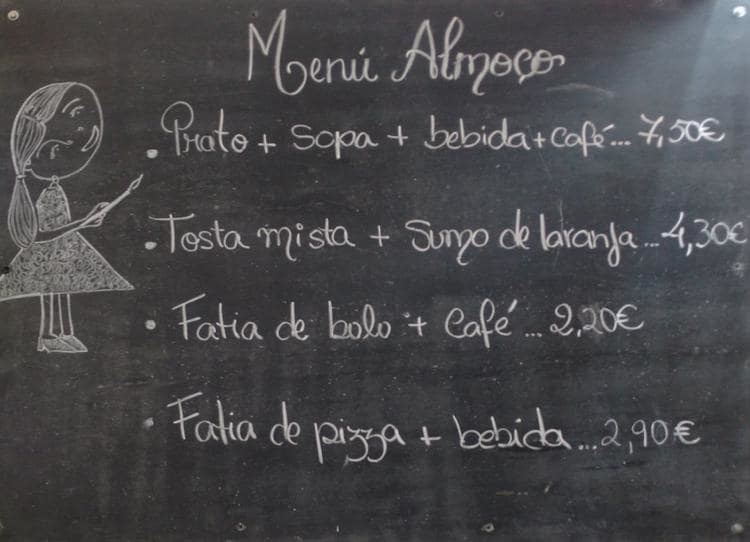 Menú Almoço
. Prato + sopa + bebida + café... 7,50€
. Tosta mista + Sumo de laranja...4,30€
. Fatia de bolo + Café ... 2,20€
. Fatia de pizza + bebida ...2,90€